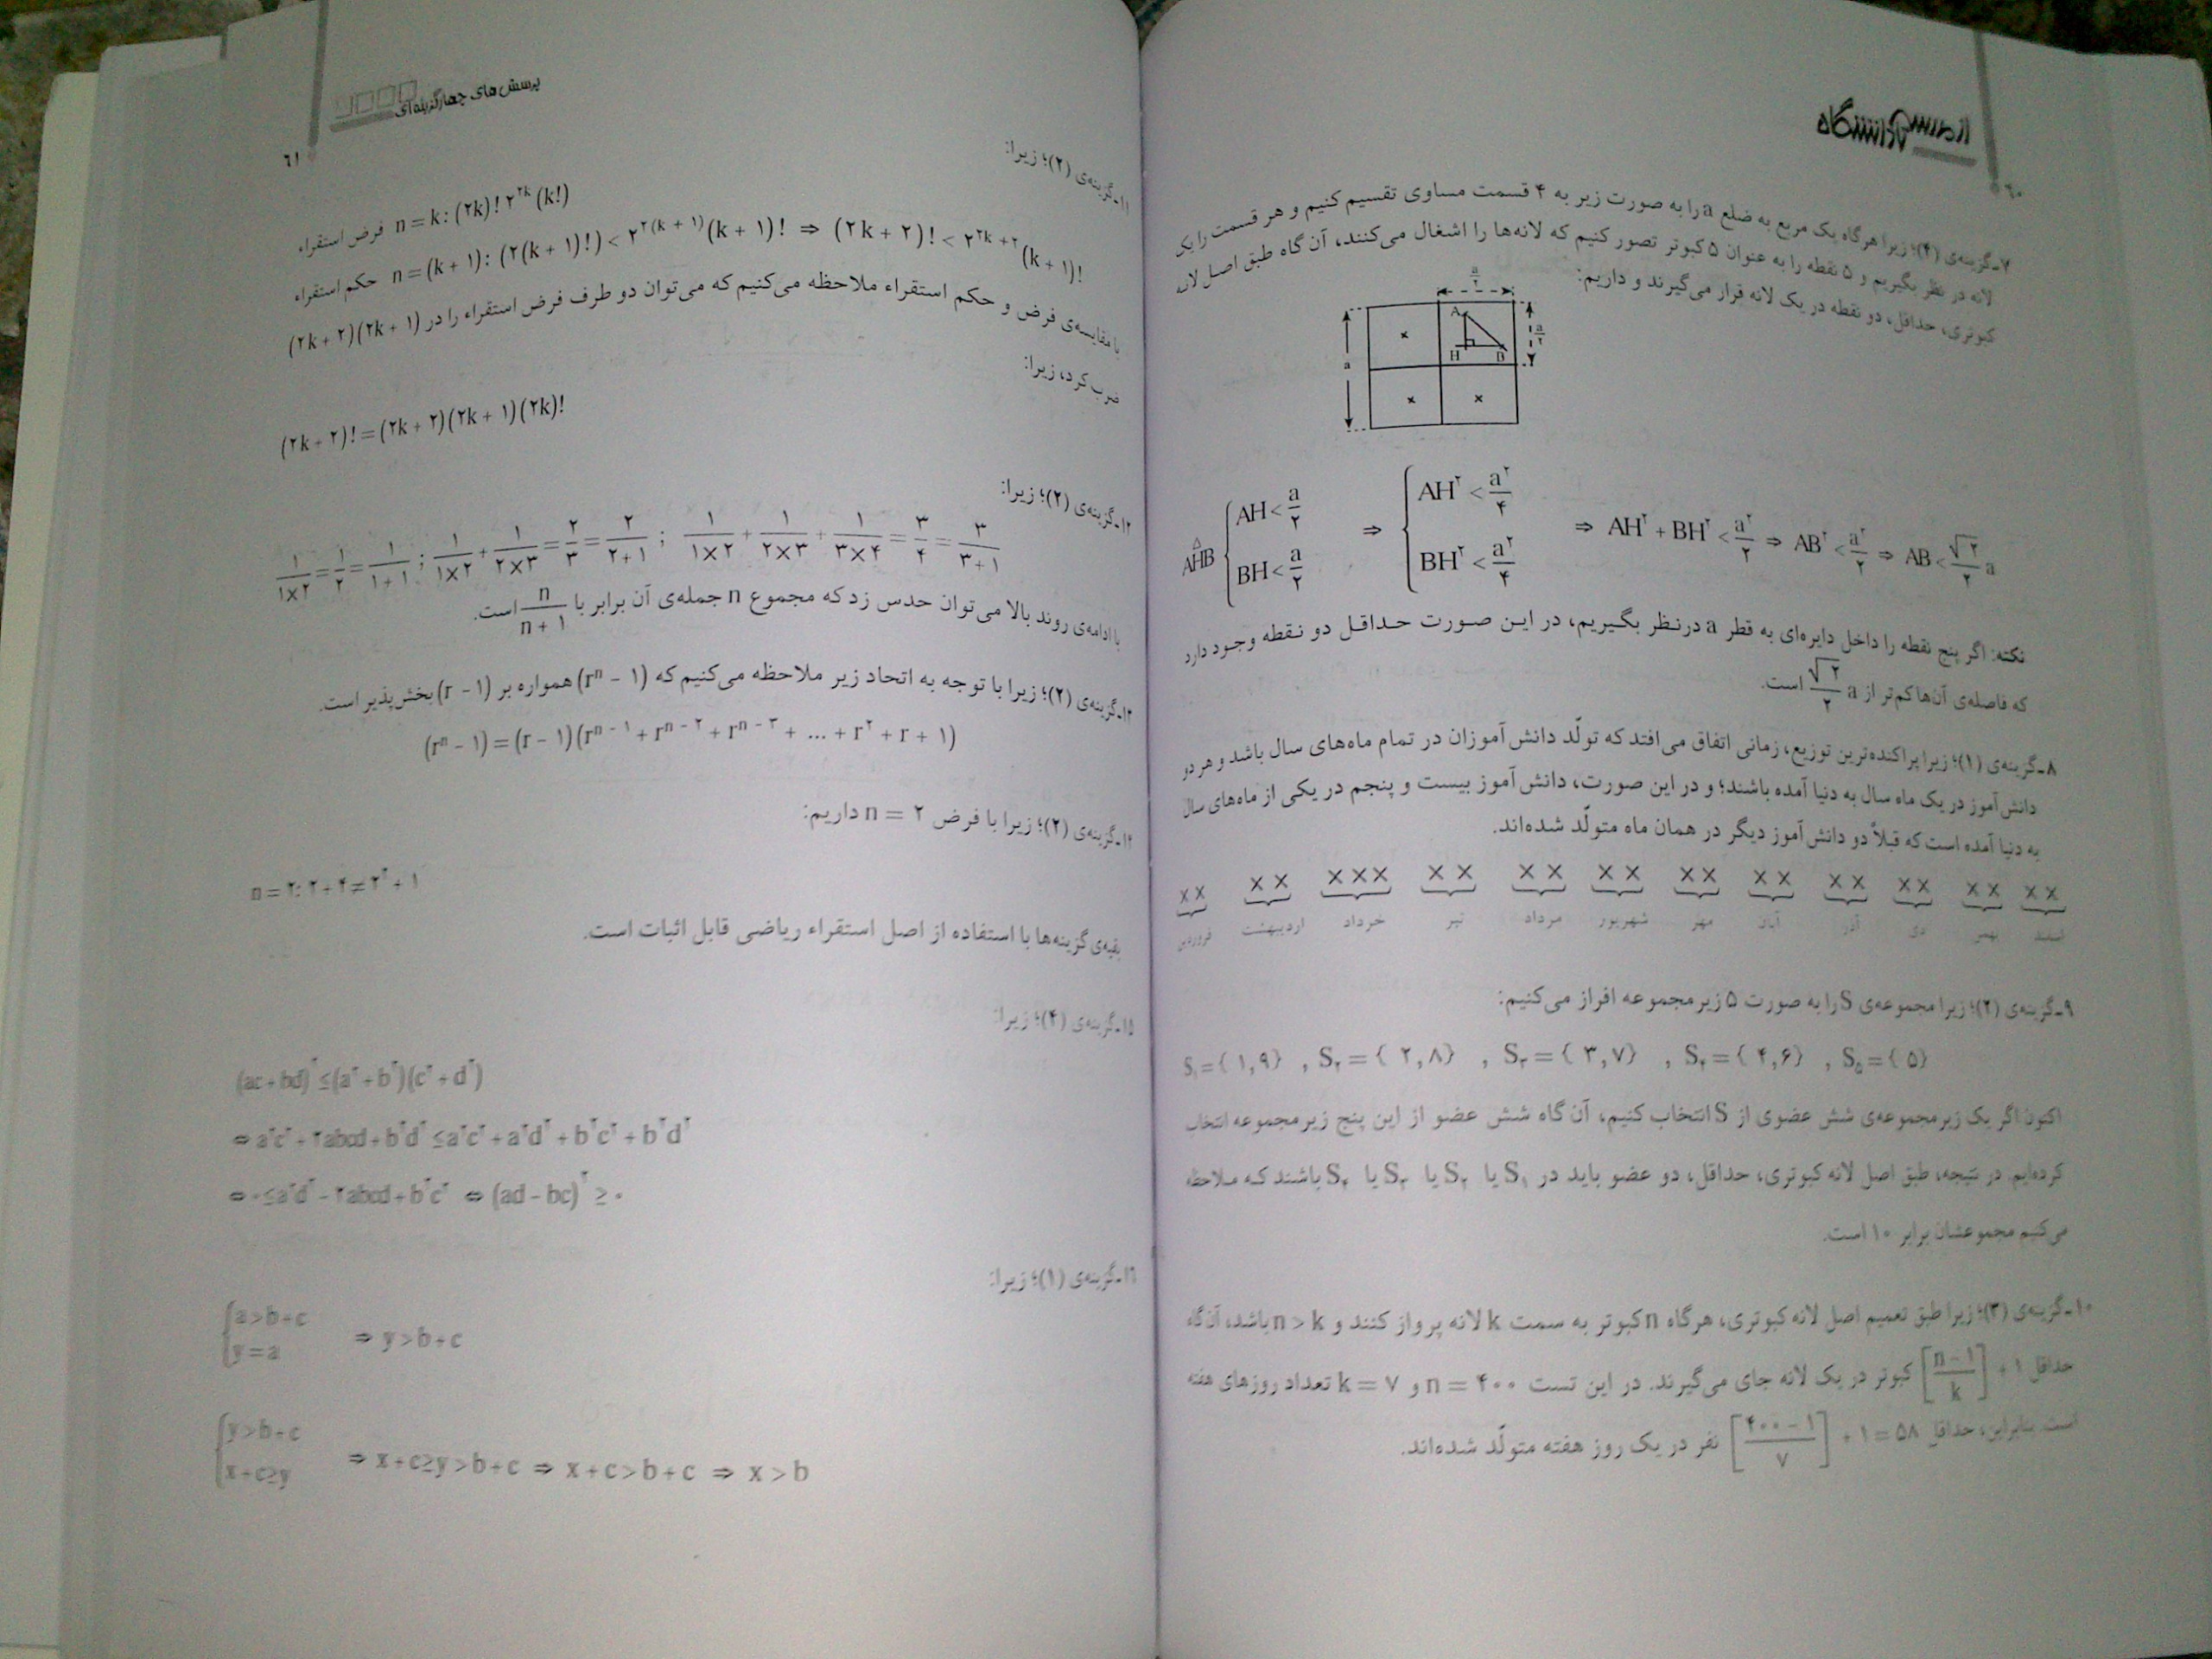 از مدرسه تا دانشگاه
۶۰
۷ـ گزینه‌ی (۴)؛ زیرا هرگاه یک مربع به ضلع a را به صورت زیر به ۴ قسمت مساوی تقسیم کنیم و هر قسمت را یک
لانه در نظر بگیریم و ۵ نقطه را به عنوان ۵ کبوتر تصور کنیم که لانه‌ها را اشغال می‌کنند، آن گاه طبق اصل لانه
کبوتری، حداقل، دو نقطه در یک لانه قرار می‌گیرند و داریم:
a/۲
A
H B
a/۲
a
AHB { AH < a/۲ , BH < a/۲ ⇒ { AH² < a²/۴ , BH² < a²/۴ ⇒ AH² + BH² < a²/۲ ⇒ AB² < a²/۲ ⇒ AB < √۲/۲ a
نکته: اگر پنج نقطه را داخل دایره‌ای به قطر a درنظر بگیریم، در این صورت حداقل دو نقطه وجود دارد
که فاصله‌ی آن‌ها کم‌تر از √۲/۲ a است.
۸ـ گزینه‌ی (۱)؛ زیرا پراکنده‌ترین توزیع، زمانی اتفاق می‌افتد که تولّد دانش‌آموزان در تمام ماه‌های سال باشد و هر دو
دانش‌آموز در یک ماه سال به دنیا آمده باشند؛ و در این صورت، دانش‌آموز بیست و پنجم در یکی از ماه‌های سال
به دنیا آمده است که قبلاً دو دانش‌آموز دیگر در همان ماه متولّد شده‌اند.
×× ×× ××× ×× ×× ×× ×× ×× ×× ×× ×× ××
فروردین اردیبهشت خرداد تیر مرداد شهریور مهر آبان آذر دی بهمن اسفند
۹ـ گزینه‌ی (۲)؛ زیرا مجموعه‌ی S را به صورت ۵ زیرمجموعه افراز می‌کنیم:
S₁ = {۱,۹} , S₂ = {۲,۸} , S₃ = {۳,۷} , S₄ = {۴,۶} , S₅ = {۵}
اکنون اگر یک زیرمجموعه‌ی شش عضوی از S انتخاب کنیم، آن گاه شش عضو از این پنج زیرمجموعه انتخاب
کرده‌ایم. در نتیجه، طبق اصل لانه کبوتری، حداقل، دو عضو باید در S₁ یا S₂ یا S₃ یا S₄ باشند که ملاحظه
می‌کنیم مجموعشان برابر ۱۰ است.
۱۰ـ گزینه‌ی (۳)؛ زیرا طبق تعمیم اصل لانه کبوتری، هرگاه n کبوتر به سمت k لانه پرواز کنند و n > k باشد، آن‌گاه
حداقل ۱ + [(n − ۱)/k] کبوتر در یک لانه جای می‌گیرند. در این تست n = ۴۰۰ و k = ۷ تعداد روزهای هفته
است. بنابراین، حداقل ۵۸ = ۱ + [(۴۰۰ − ۱)/۷] نفر در یک روز هفته متولّد شده‌اند.
پرسش‌های چهارگزینه‌ای
۶۱
۱۱ـ گزینه‌ی (۲)؛ زیرا:
فرض استقراء n = k : (۲k)! ۲^۲k (k!)
حکم استقراء n = (k + ۱) : (۲(k + ۱)!) < ۲^۲(k + ۱) (k + ۱)! ⇒ (۲k + ۲)! < ۲^۲k + ۲ (k + ۱)!
با مقایسه‌ی فرض و حکم استقراء ملاحظه می‌کنیم که می‌توان دو طرف فرض استقراء را در (۲k + ۱)(۲k + ۲)
ضرب کرد، زیرا:
(۲k + ۲)! = (۲k + ۲)(۲k + ۱)(۲k)!
۱۲ـ گزینه‌ی (۲)؛ زیرا:
۱/(۱×۲) = ۱/۲ = ۱/(۱+۱) ; ۱/(۱×۲) + ۱/(۲×۳) = ۲/۳ = ۲/(۲+۱) ; ۱/(۱×۲) + ۱/(۲×۳) + ۱/(۳×۴) = ۳/۴ = ۳/(۳+۱)
با ادامه‌ی روند بالا می‌توان حدس زد که مجموع n جمله‌ی آن برابر با n/(n + ۱) است.
۱۳ـ گزینه‌ی (۲)؛ زیرا با توجه به اتحاد زیر ملاحظه می‌کنیم که (rⁿ − ۱) همواره بر (r − ۱) بخش‌پذیر است.
(rⁿ − ۱) = (r − ۱)(r^n − ۱ + r^n − ۲ + r^n − ۳ + ... + r² + r + ۱)
۱۴ـ گزینه‌ی (۲)؛ زیرا با فرض n = ۲ داریم:
n = ۲ : ۲ + ۴ ≠ ۲² + ۱
بقیه‌ی گزینه‌ها با استفاده از اصل استقراء ریاضی قابل اثبات است.
۱۵ـ گزینه‌ی (۴)؛ زیرا:
(ac + bd)² ≤ (a² + b²)(c² + d²)
⇔ a²c² + ۲abcd + b²d² ≤ a²c² + a²d² + b²c² + b²d²
⇔ ۰ ≤ a²d² − ۲abcd + b²c² ⇔ (ad − bc)² ≥ ۰
۱۶ـ گزینه‌ی (۱)؛ زیرا:
{ a > b + c , y = a ⇒ y > b + c
{ y > b + c , x + c ≥ y ⇒ x + c ≥ y > b + c ⇒ x + c > b + c ⇒ x > b